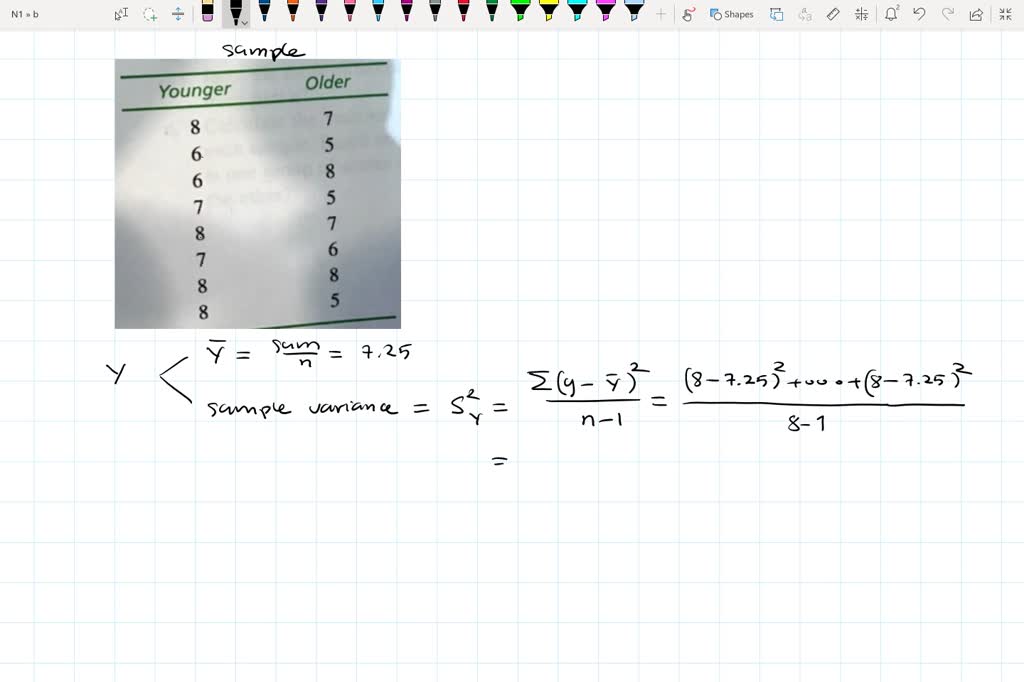 N1 » b
Shapes
2
sample
Younger Older
8 7
6 5
6 8
7 5
8 7
7 6
8 8
8 5
Y
Ȳ = sum/n = 7.25
sample variance = S²_Y = Σ(y - ȳ)²/n-1 = (8-7.25)²+ooo+(8-7.25)²/8-1
=